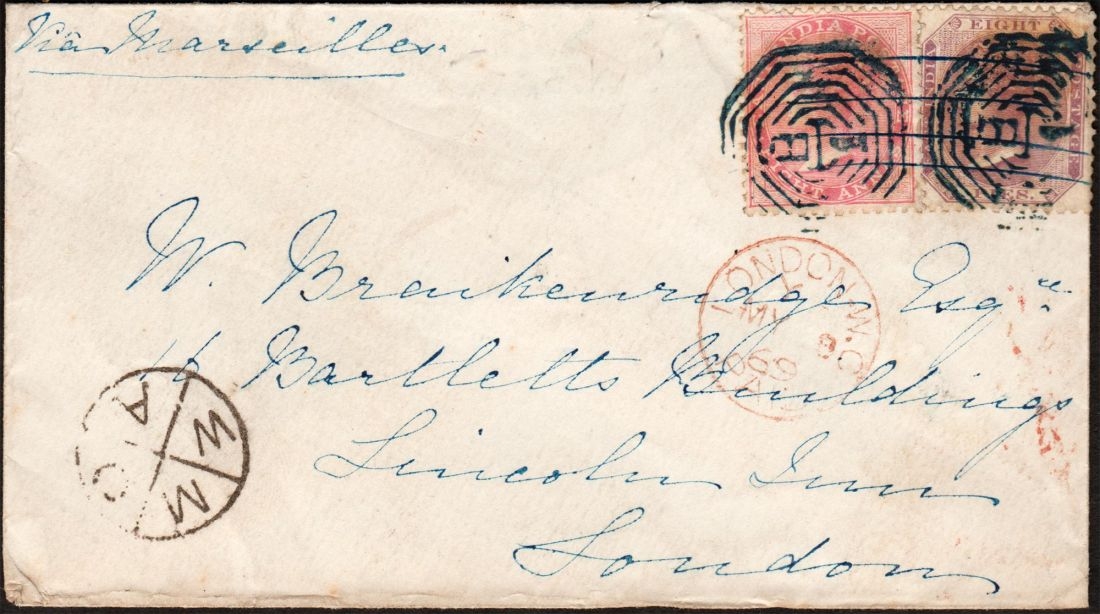 Via Marseilles.
INDIA
EIGHT ANN
EIGHT
INDIA
POSTAGE
B 1
B 1
W. Braikenridge Esqre
Bartletts Buildings
Lincoln Inn
London
LONDON.W.C
MY 8
69
W M A